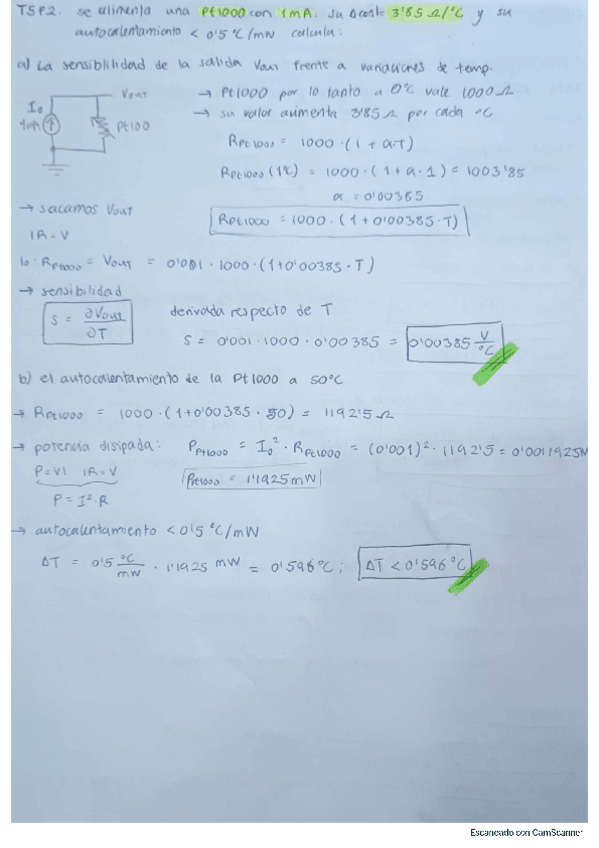 T5P2. se alimenta una Pt1000 con 1mA. su Δconst 3'85 Ω/°C y su
autocalentamiento < 0'5 °C/mW calcula:
a) La sensibilidad de la salida Vout frente a variaciones de temp.
I0
1mA
Vout
Pt100
→ Pt1000 por lo tanto a 0°C vale 1000 Ω
→ su valor aumenta 3'85 Ω por cada °C
RPt1000 = 1000 · (1 + α·T)
RPt1000 (1°C) = 1000 · (1 + α · 1) = 1003'85
α = 0'00385
RPt1000 = 1000 · (1 + 0'00385 · T)
→ sacamos Vout
IR = V
I0 · RPt1000 = Vout = 0'001 · 1000 · (1+0'00385 · T)
→ sensibilidad
S = ∂Vout/∂T
derivada respecto de T
S = 0'001 · 1000 · 0'00385 = 0'00385 V/°C
b) el autocalentamiento de la Pt1000 a 50°C
→ RPt1000 = 1000 · (1+0'00385 · 50) = 1192'5 Ω
→ potencia disipada: PPt1000 = I0² · RPt1000 = (0'001)² · 1192'5 = 0'0011925W
P=VI IR=V
P = I² · R
PPt1000 = 1'1925 mW
→ autocalentamiento < 0'5 °C/mW
ΔT = 0'5 °C/mW · 1'1925 mW = 0'596 °C; ΔT < 0'596 °C
Escaneado con CamScanner